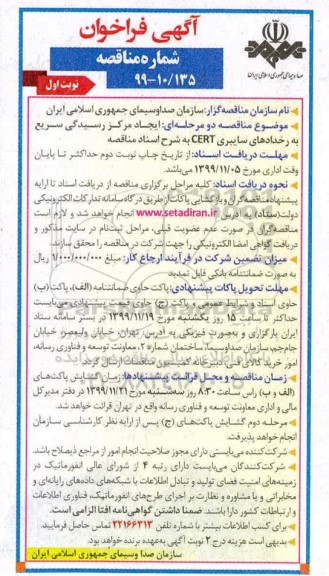 آگهی فراخوان
شماره مناقصه
۹۹-۱۰/۱۳۵
صداوسیمای جمهوری اسلامی ایران
نوبت اول
نام سازمان مناقصه‌گزار: سازمان صداوسیمای جمهوری اسلامی ایران
موضوع مناقصه دو مرحله‌ای: ایجاد مرکز رسیدگی سریع
به رخدادهای سایبری CERT به شرح اسناد مناقصه
مهلت دریافت اسناد: از تاریخ چاپ نوبت دوم حداکثر تا پایان
وقت اداری مورخ ۱۳۹۹/۱۱/۰۵ می‌باشد.
نحوه دریافت اسناد: کلیه مراحل برگزاری مناقصه از دریافت اسناد تا ارایه
پیشنهاد مناقصه‌گران و بازگشایی پاکات از طریق درگاه سامانه تدارکات الکترونیکی
دولت (ستاد) به آدرس www.setadiran.ir انجام خواهد شد و لازم است
مناقصه‌گران در صورت عدم عضویت قبلی، مراحل ثبت‌نام در سایت مذکور و
دریافت گواهی امضا الکترونیکی را جهت شرکت در مناقصه را محقق سازند.
میزان تضمین شرکت در فرآیند ارجاع کار: مبلغ ۱/۰۰۰/۰۰۰/۰۰۰ ریال
به صورت ضمانتنامه بانکی قابل تمدید
مهلت تحویل پاکات پیشنهادی: پاکت حاوی ضمانتنامه (الف)، پاکت (ب)
حاوی اسناد و شرایط عمومی و پاکت (ج) حاوی قیمت پیشنهادی می‌بایست
حداکثر تا ساعت ۱۵ روز یکشنبه مورخ ۱۳۹۹/۱۱/۱۹ در بستر سامانه ستاد
ایران بارگزاری و به‌صورت فیزیکی به آدرس: تهران، خیابان ولیعصر، خیابان
جام‌جم، سازمان صداوسیما، ساختمان شماره ۲، معاونت توسعه و فناوری رسانه،
امور خرید کالای فنی، دبیرخانه کمیسیون مناقصات ارسال گردد.
زمان مناقصه و محل قرائت پیشنهادها: زمان گشایش پاکت‌های
(الف و ب) راس ساعت ۸:۳۰ روز سه‌شنبه مورخ ۱۳۹۹/۱۱/۲۱ در دفتر مدیرکل
مالی و اداری معاونت توسعه و فناوری رسانه واقع در تهران قرائت خواهد شد.
مرحله دوم گشایش پاکت‌های (ج) پس از ارایه نظر کارشناسی سازمان
انجام خواهد پذیرفت.
شرکت‌کننده می‌بایستی دارای مجوز صلاحیت انجام امور از مراجع ذیصلاح باشد.
شرکت‌کنندگان می‌بایست دارای رتبه ۴ از شورای عالی انفورماتیک در
زمینه‌های امنیت فضای تولید و تبادل اطلاعات یا شبکه‌های داده‌های رایانه‌ای و
مخابراتی و یا مشاوره و نظارت بر اجرای طرح‌های انفورماتیک، فناوری اطلاعات
و ارتباطات کشور دارا باشند. ضمنا داشتن گواهی‌نامه افتا الزامی است.
برای کسب اطلاعات بیشتر با شماره تلفن ۲۲۱۶۶۳۱۳ تماس حاصل فرمایید.
بدیهی است هزینه درج ۲ نوبت آگهی به‌عهده برنده خواهد بود.
سازمان صدا وسیمای جمهوری اسلامی ایران